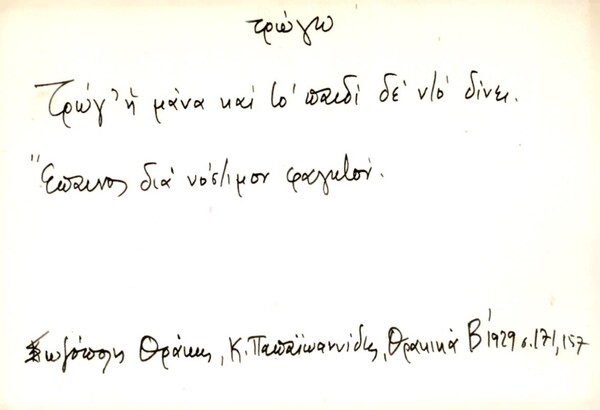 τρώγω
Τρώγ' ἡ μάνα καὶ το' παιδὶ δὲ ντο' δίνει.
Ἔπαινος διὰ νόστιμον φαγητόν.
Σωζόπολη Θράκης, Κ. Παπαϊωαννίδης, Θρακικὰ Β' 1929 σ. 171, 157